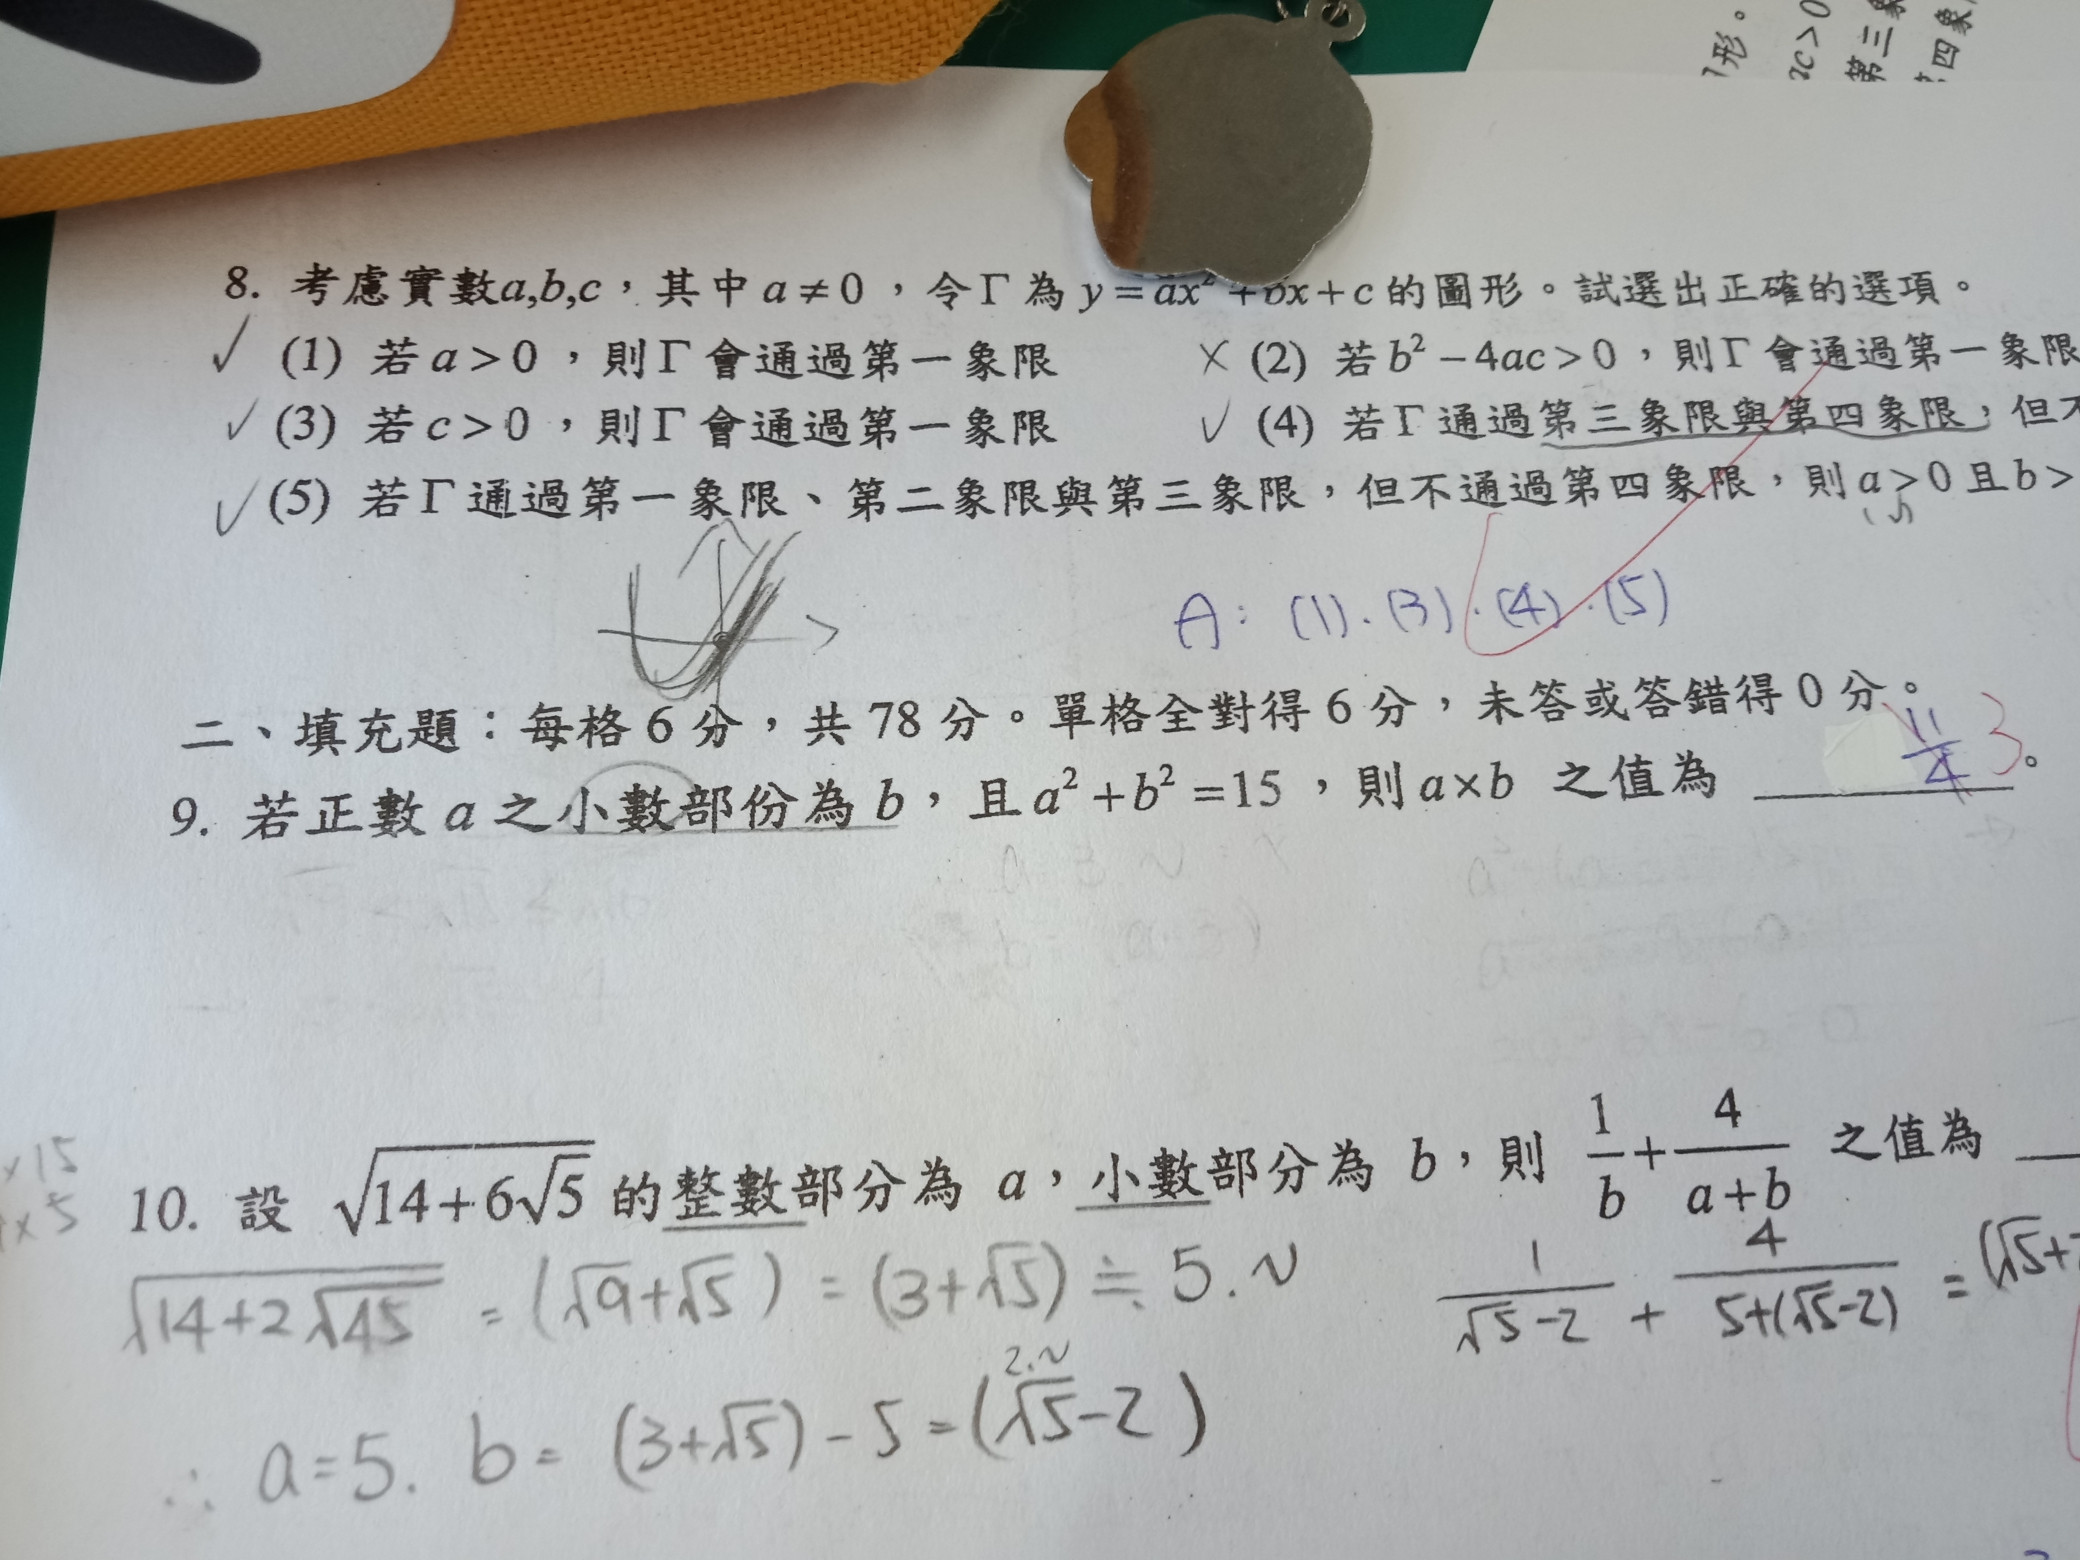 形。
ac>0
第三象
四象
8. 考慮實數a,b,c，其中 a≠0，令Γ為 y=ax²+bx+c的圖形。試選出正確的選項。
✓ (1) 若a>0，則Γ會通過第一象限 × (2) 若b²−4ac>0，則Γ會通過第一象限
✓ (3) 若c>0，則Γ會通過第一象限 ✓ (4) 若Γ通過第三象限與第四象限，但不
✓ (5) 若Γ通過第一象限、第二象限與第三象限，但不通過第四象限，則a>0且b>
A: (1).(3).(4).(5)
二、填充題：每格6分，共78分。單格全對得6分，未答或答錯得0分。
9. 若正數a之小數部份為b，且a²+b²=15，則a×b 之值為 11/4 3。
×15
×5
10. 設 √(14+6√5) 的整數部分為 a，小數部分為 b，則 1/b+4/(a+b) 之值為
√(14+2√45) = (√9+√5) = (3+√5) ≒ 5.~ 1/(√5-2) + 4/(5+(√5-2)) = (√5+
2.~
∴ a=5. b= (3+√5)-5=(√5-2)